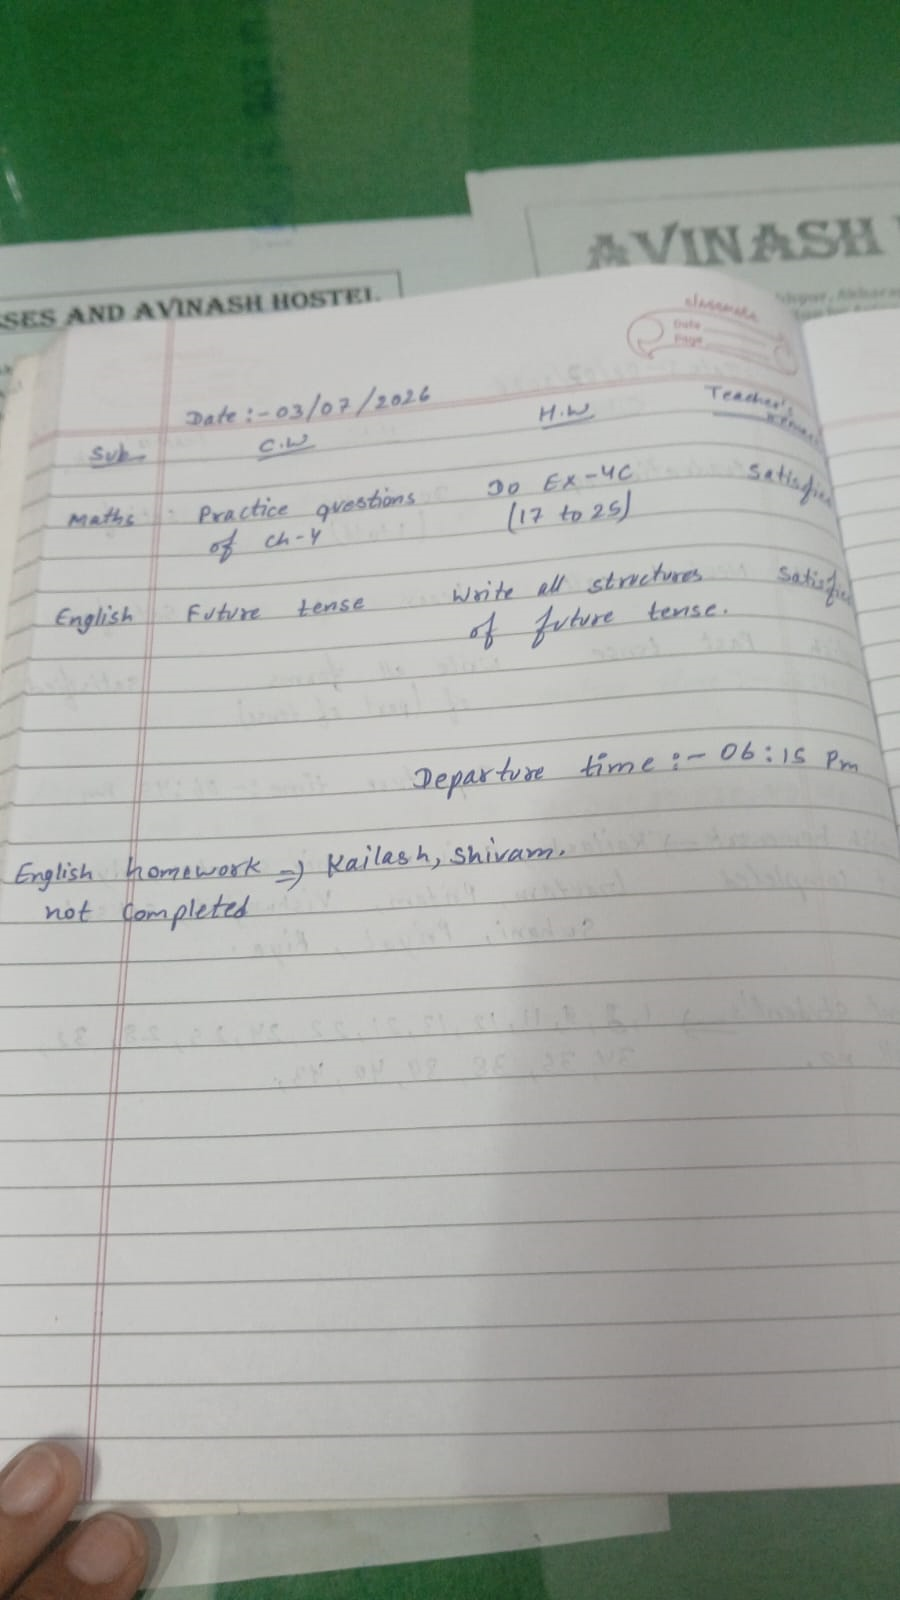 AVINASH
SSES AND AVINASH HOSTEL
classmate
Date
Page
Date :- 03/07/2026
Sub C.W H.W Teacher's
Maths Practice questions of ch-4 Do Ex-4C (17 to 25) Satisfied
English Future tense Write all structures of future tense. Satisfied
Departure time :- 06:15 Pm
English homework => Kailash, Shivam.
not completed